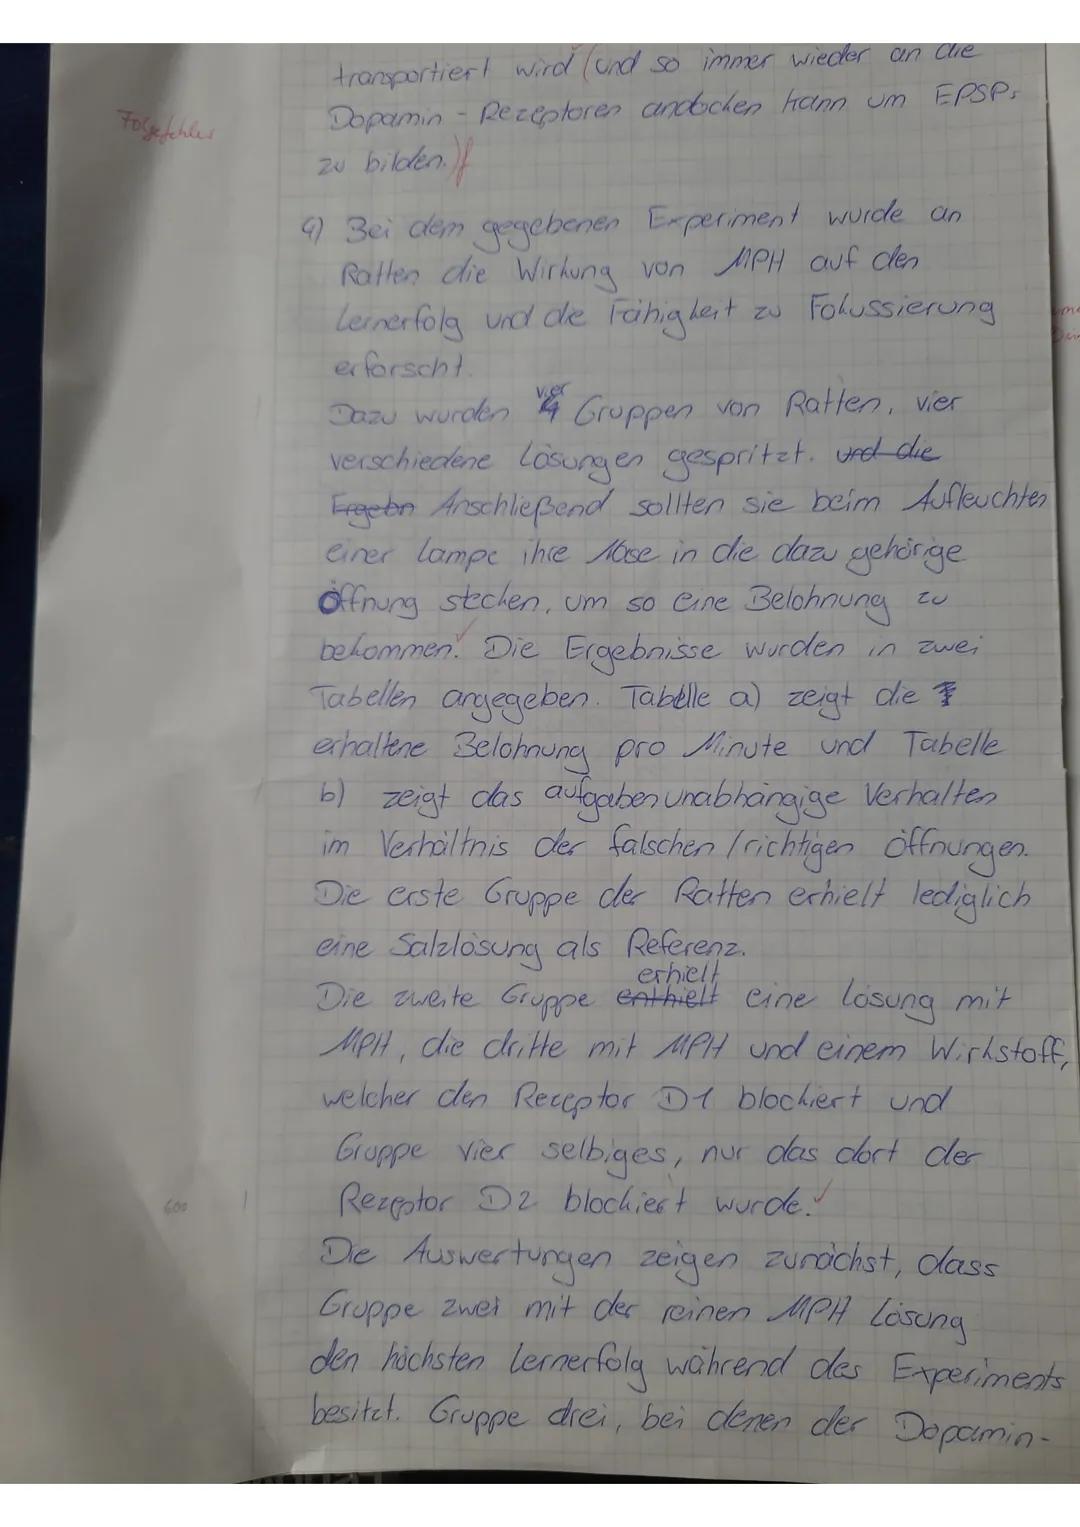 transportiert wird (und so immer wieder an die
Folgefehler
Dopamin - Rezeptoren andocken kann um EPSPs
zu bilden.) f
4) Bei dem gegebenen Experiment wurde an
Ratten die Wirkung von MPH auf den
Lernerfolg und die Fähigkeit zu Fokussierung
erforscht.
Dazu wurden vier Gruppen von Ratten, vier
verschiedene Lösungen gespritzt. und die
Ergebn Anschließend sollten sie beim Aufleuchten
einer Lampe ihre Nase in die dazu gehörige
Öffnung stecken, um so eine Belohnung zu
bekommen. Die Ergebnisse wurden in zwei
Tabellen angegeben. Tabelle a) zeigt die
erhaltene Belohnung pro Minute und Tabelle
b) zeigt das aufgabenunabhängige Verhalten
im Verhältnis der falschen / richtigen Öffnungen.
Die erste Gruppe der Ratten erhielt lediglich
eine Salzlösung als Referenz.
erhielt
Die zweite Gruppe enthielt eine Lösung mit
MPH, die dritte mit MPH und einem Wirkstoff,
welcher den Rezeptor D1 blockiert und
Gruppe vier selbiges, nur das dort der
Rezeptor D2 blockiert wurde.
600
Die Auswertungen zeigen zunächst, dass
Gruppe zwei mit der reinen MPH Lösung
den höchsten Lernerfolg während des Experiments
besitzt. Gruppe drei, bei denen der Dopamin-